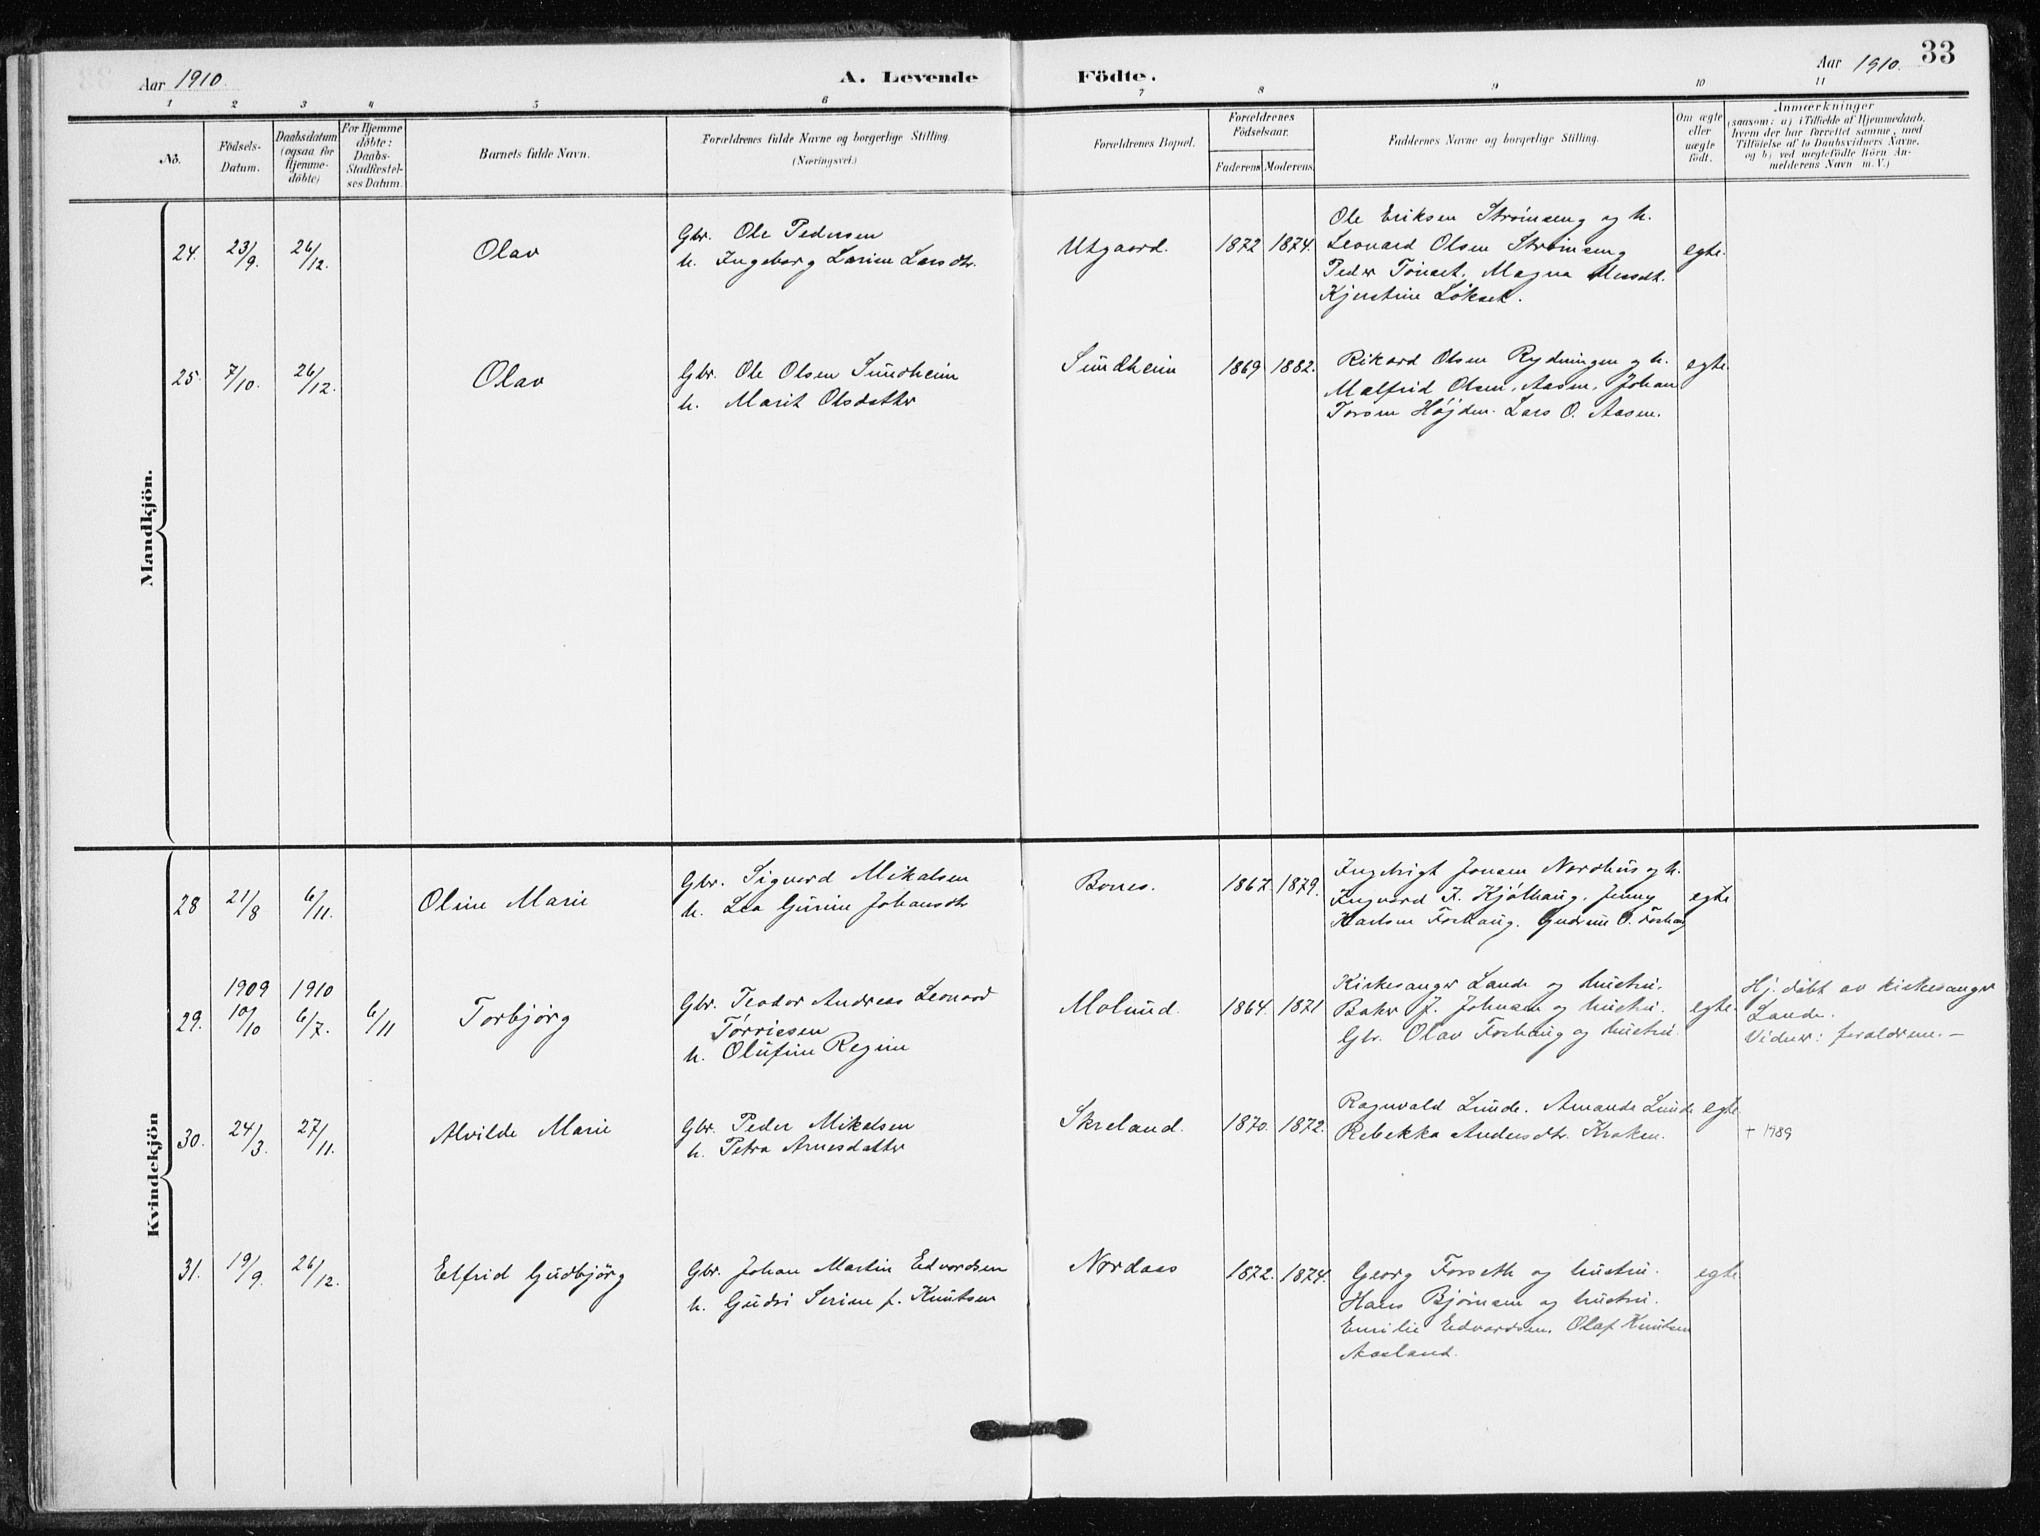 33
Aar 1910. A. Levende Födte. Aar 1910.
1 2 3 4 5 6 7 8 9 10 11
No.
Födsels-
Datum.
Daabsdatum
(ogsaa for
Hjemme-
döbte)
For Hjemme
döbte:
Daabs-
Stadfæstel-
ses Datum.
Barnets fulde Navn.
Forældrenes fulde Navne og borgerlige Stilling.
(Næringsvei.)
Forældrenes Bopæl.
Forældrenes
Födselsaar.
Faderens Moderens.
Faddernes Navne og borgerlige Stilling.
Om ægte
eller
uægte
født.
Anmærkninger
(saasom: a) i Tilfælde af Hjemmedaab,
hvem der har forrettet samme, med
Tilföielse af to Daabsvidners Navne.
og b) ved uægtefödte Börn An-
melderens Navn m. V.)
Mandkjön.
24. 23/9. 26/12. Olav
Gbr. Ole Pedersen
h. Ingeborg Larine Larsdtr.
Utgaard. 1872 1874.
Ole Eriksen Strömseng og h.
Leonard Olsen Strömseng
Peder Tönset. Magna
Kjerstine Lökset.
egte.
25. 7/10. 26/12. Olav
Gbr. Ole Olsen Sundheim
h. Marit Olsdatter
Sundheim 1869 1882.
Rikard Olsen Rydningen og h.
Malfrid Olsen, Aasen, Johan
Højden. Lars O. Aasen.
egte.
Kvindekjön
28 21/8 6/11. Oline Marie
Gbr. Sigvard Mikalsen
h. Lea Gurine Johansdtr
Bones. 1867. 1879.
Ingebrigt Jonsen Nordhus og h.
Ingvard F. Kjölhaug. Jenny
Karlsen Forhaug. Gudrun O. Forhaug
egte
29. 1909 10/10 1910 6/7. 6/11 Torbjörg
Gbr. Teodor Andreas Leonard
Törriesen
h. Olufine Regine
Molund. 1864. 1871
Kirkesanger Lande og hustru.
Baker J. Johnsen og hustru.
Gbr. Olav Forhaug og hustru.
egte.
Hj. döbt av kirkesanger
Lande.
Vidner: foraldrene. –
30. 24/3. 27/11. Alvilde Marie
Gbr. Peder Mikalsen
h. Petra Arnesdatter
Skreland. 1870. 1872.
Ragnvald Lunde. Amanda Lunde
Rebekka Andersdtr. Kroken.
egte.
+ 1989
31. 19/9. 26/12. Elfrid Gudbjörg
Gbr. Johan Martin Edvardsen
h. Gudri Serine f. Knutsen
Nordaas 1872. 1874.
Georg Forseth og hustru.
Hans Bjørnsen og hustru.
Emilie Edvardsen. Olaf Knutsen
Aasland.
egte.